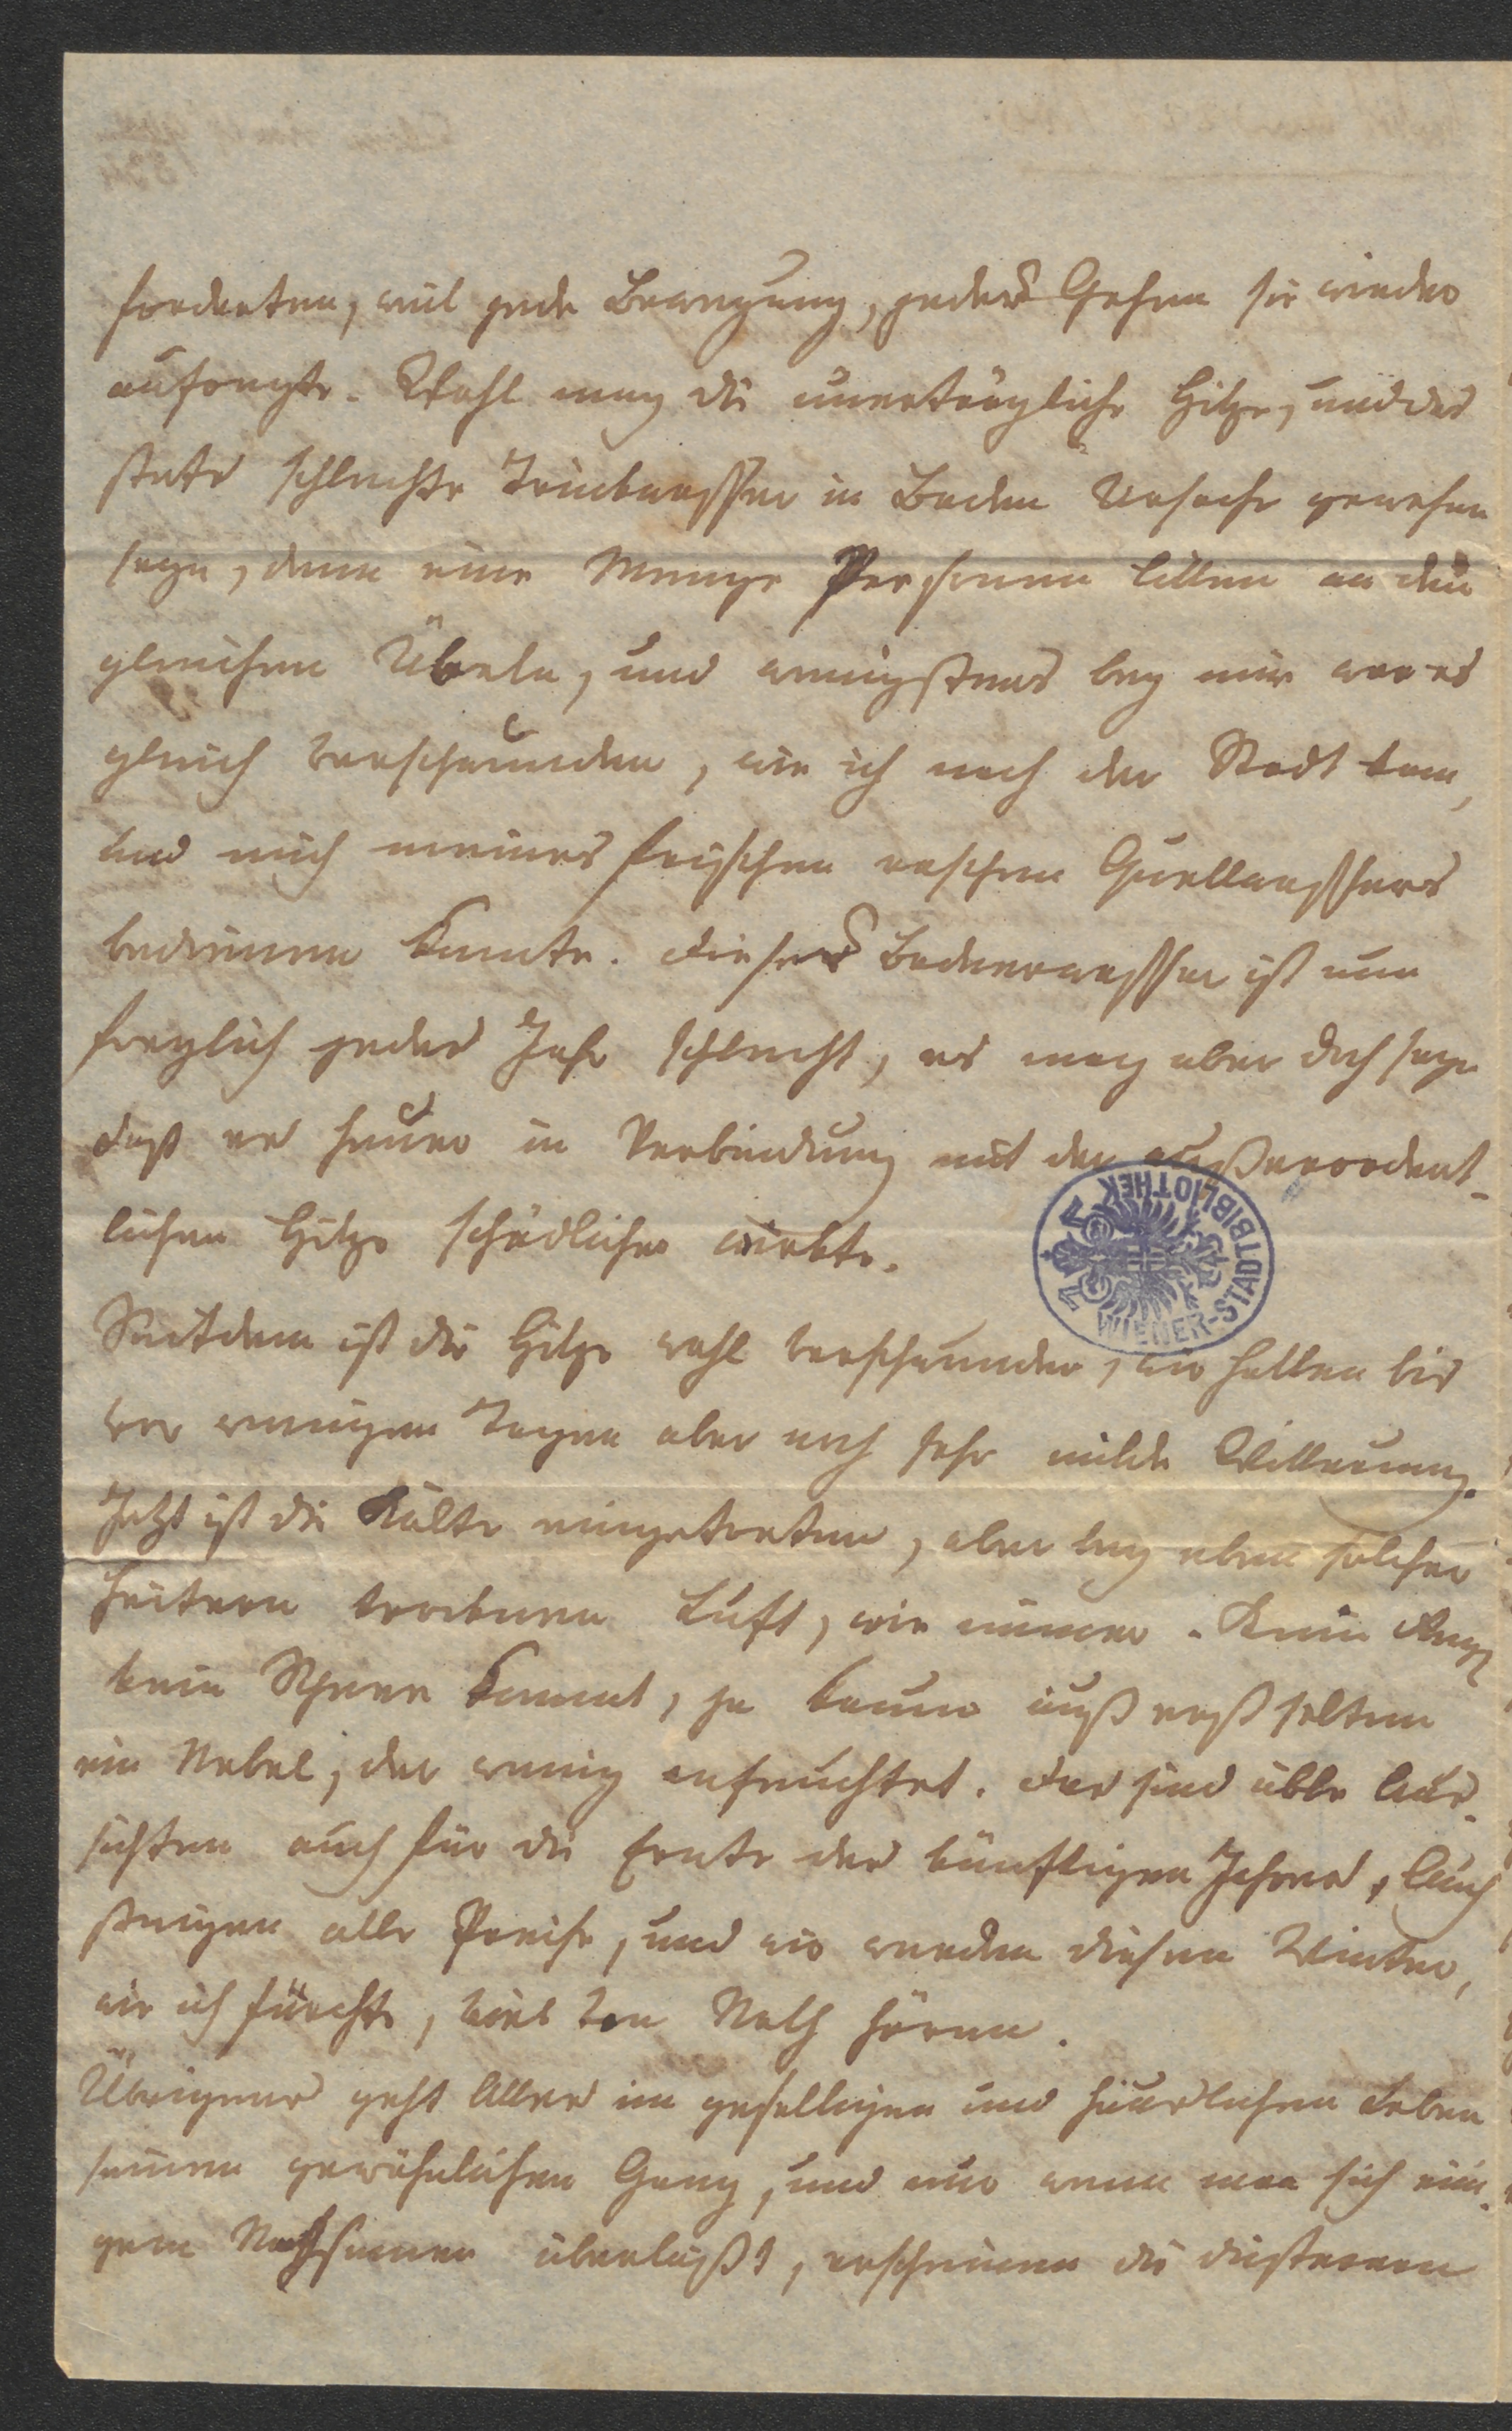 forderten, weil jede Bewegung, jedes Gehen sie wieder
aufregte. Wohl mag die unerträgliche Hitze, und das
stets schlechte Trinkwasser in Baden Ursache gewesen
seyn, denn eine Menge Personen litten an den
gleichen Übeln, und wenigstens bey mir war es
gleich verschwunden, wie ich nach der Stadt kam,
und mich meines frischen raschen Quellwassers
bedienen konnte. Dieses Badnerwasser ist nun
freylich jedes Jahr schlecht, es mag aber doch seyn
daß es heuer in Verbindung mit der außerordent-
lichen Hitze schädlicher wirkte.
Seitdem ist die Hitze wohl verschwunden, wir hatten bis
vor wenigen Tagen aber noch sehr milde Witterung.
Jetzt ist die Kälte eingetreten, aber bey eben solcher
heitern trocknen Luft, wie immer. Kein Regen
kein Schnee kommt, ja kaum äußerst selten
ein Nebel, der wenig anfeuchtet. Das sind üble Aus-
sichten auch für die Ernte des künftigen Jahres, auch
steigen alle Preise, und wir werden diesen Winter,
wie ich fürchte, viel von Noth hören.
Übrigens geht Alles im geselligen und häuslichen Leben
seinen gewöhnlichen Gang, und nur wenn man sich eini-
gem Nachsinnen überläßt, erscheinen die düsteren
WIENER-STADTBIBLIOTHEK